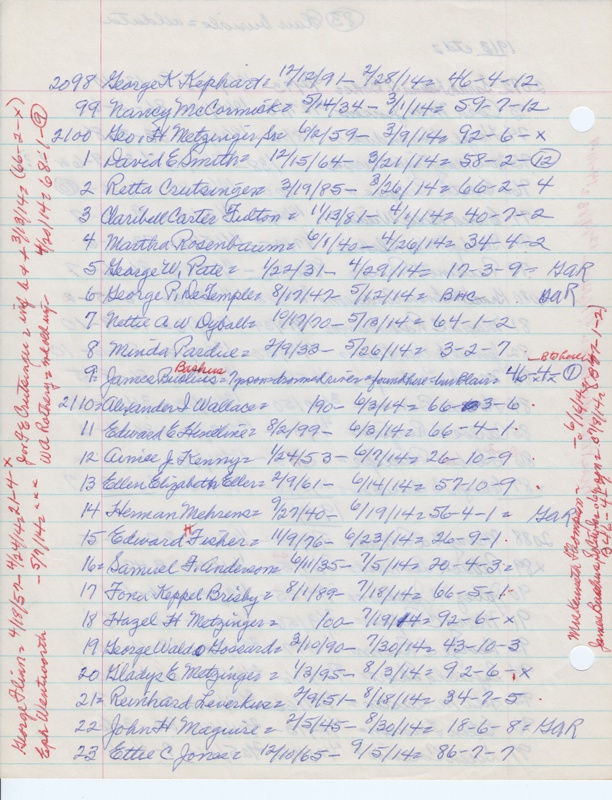 2098 George K Kephart = 12/12/91 - 2/28/14 = 46-4-12
99 Nancy McCormick = 5/14/34 - 3/1/14 = 59-7-12
2100 Geo. H Metzinger Sr 6/2/59 - 3/9/14 = 92-6-x
1 David E Smith = 12/15/64 - 3/21/14 = 58-2-12
2 Retta Crutsinger = 3/19/85 - 3/26/14 = 66-2-4
3 Claribell Carter Fulton = 1/13/81 - 4/1/14 = 40-7-2
4 Martha Rosenbaum = 6/1/40 - 4/26/14 = 34-4-2
5 George W. Pate = 1/22/31 - 4/29/14 = 17-3-9 = GaR
6 George P. DeTemple = 8/17/47 - 5/12/14 = BHC GaR
7 Nettie A. W Dyball = 10/17/70 - 5/13/14 = 64-1-2
8 Minda Pardue = 2/9/33 - 5/26/14 = 3-2-7
Bashus
9 James = drowned river = found = 46-4-x 1
2110 = Alexander I Wallace = 190 - 6/3/14 = 66-3-6
11 Edward E Headline = 8/2/99 - 6/3/14 = 66-4-1
12 J. Kenny = 1/24/53 - 6/7/14 = 26-10-9
13 Ellen Elizabeth Eller = 2/9/61 - 6/14/14 = 57-10-9
14 Herman Mehrens = 9/27/40 - 6/19/14 = 56-4-1 = GaR
15 Edward H Fisher = 11/9/76 - 6/23/14 = 26-9-1
16 = Samuel F. Anderson 6/11/35 - 7/5/14 = 20-4-3 =
17 Fona Keppel Brisby = 8/1/89 - 7/18/14 = 66-5-1
18 Hazel H Metzinger = 100 - 7/19/14 = 92-6-x
19 George Waldo Hossard = 3/10/90 - 7/30/14 = 43-10-3
20 Gladys E Metzinger = 1/3/95 - 8/3/14 = 92-6-x
21 = Reinhard Leverkus = 2/9/51 - 8/18/14 = 34-7-5
22 John H Maguire = 2/5/45 - 8/30/14 = 18-6-8 = GaR
23 Ettie C Jones = 12/10/65 - 9/5/14 = 86-7-7
inf of J & E Crutsinger = 3/13/14 = (66-2-x)
4/20/14 = 68-1-9
George Flinn = 4/18/57 - 4/24/14 = 21-4-x
Eph Wentworth - 5/7/14 = xxx
Mrs Kenneth Thompson - 6/16/14